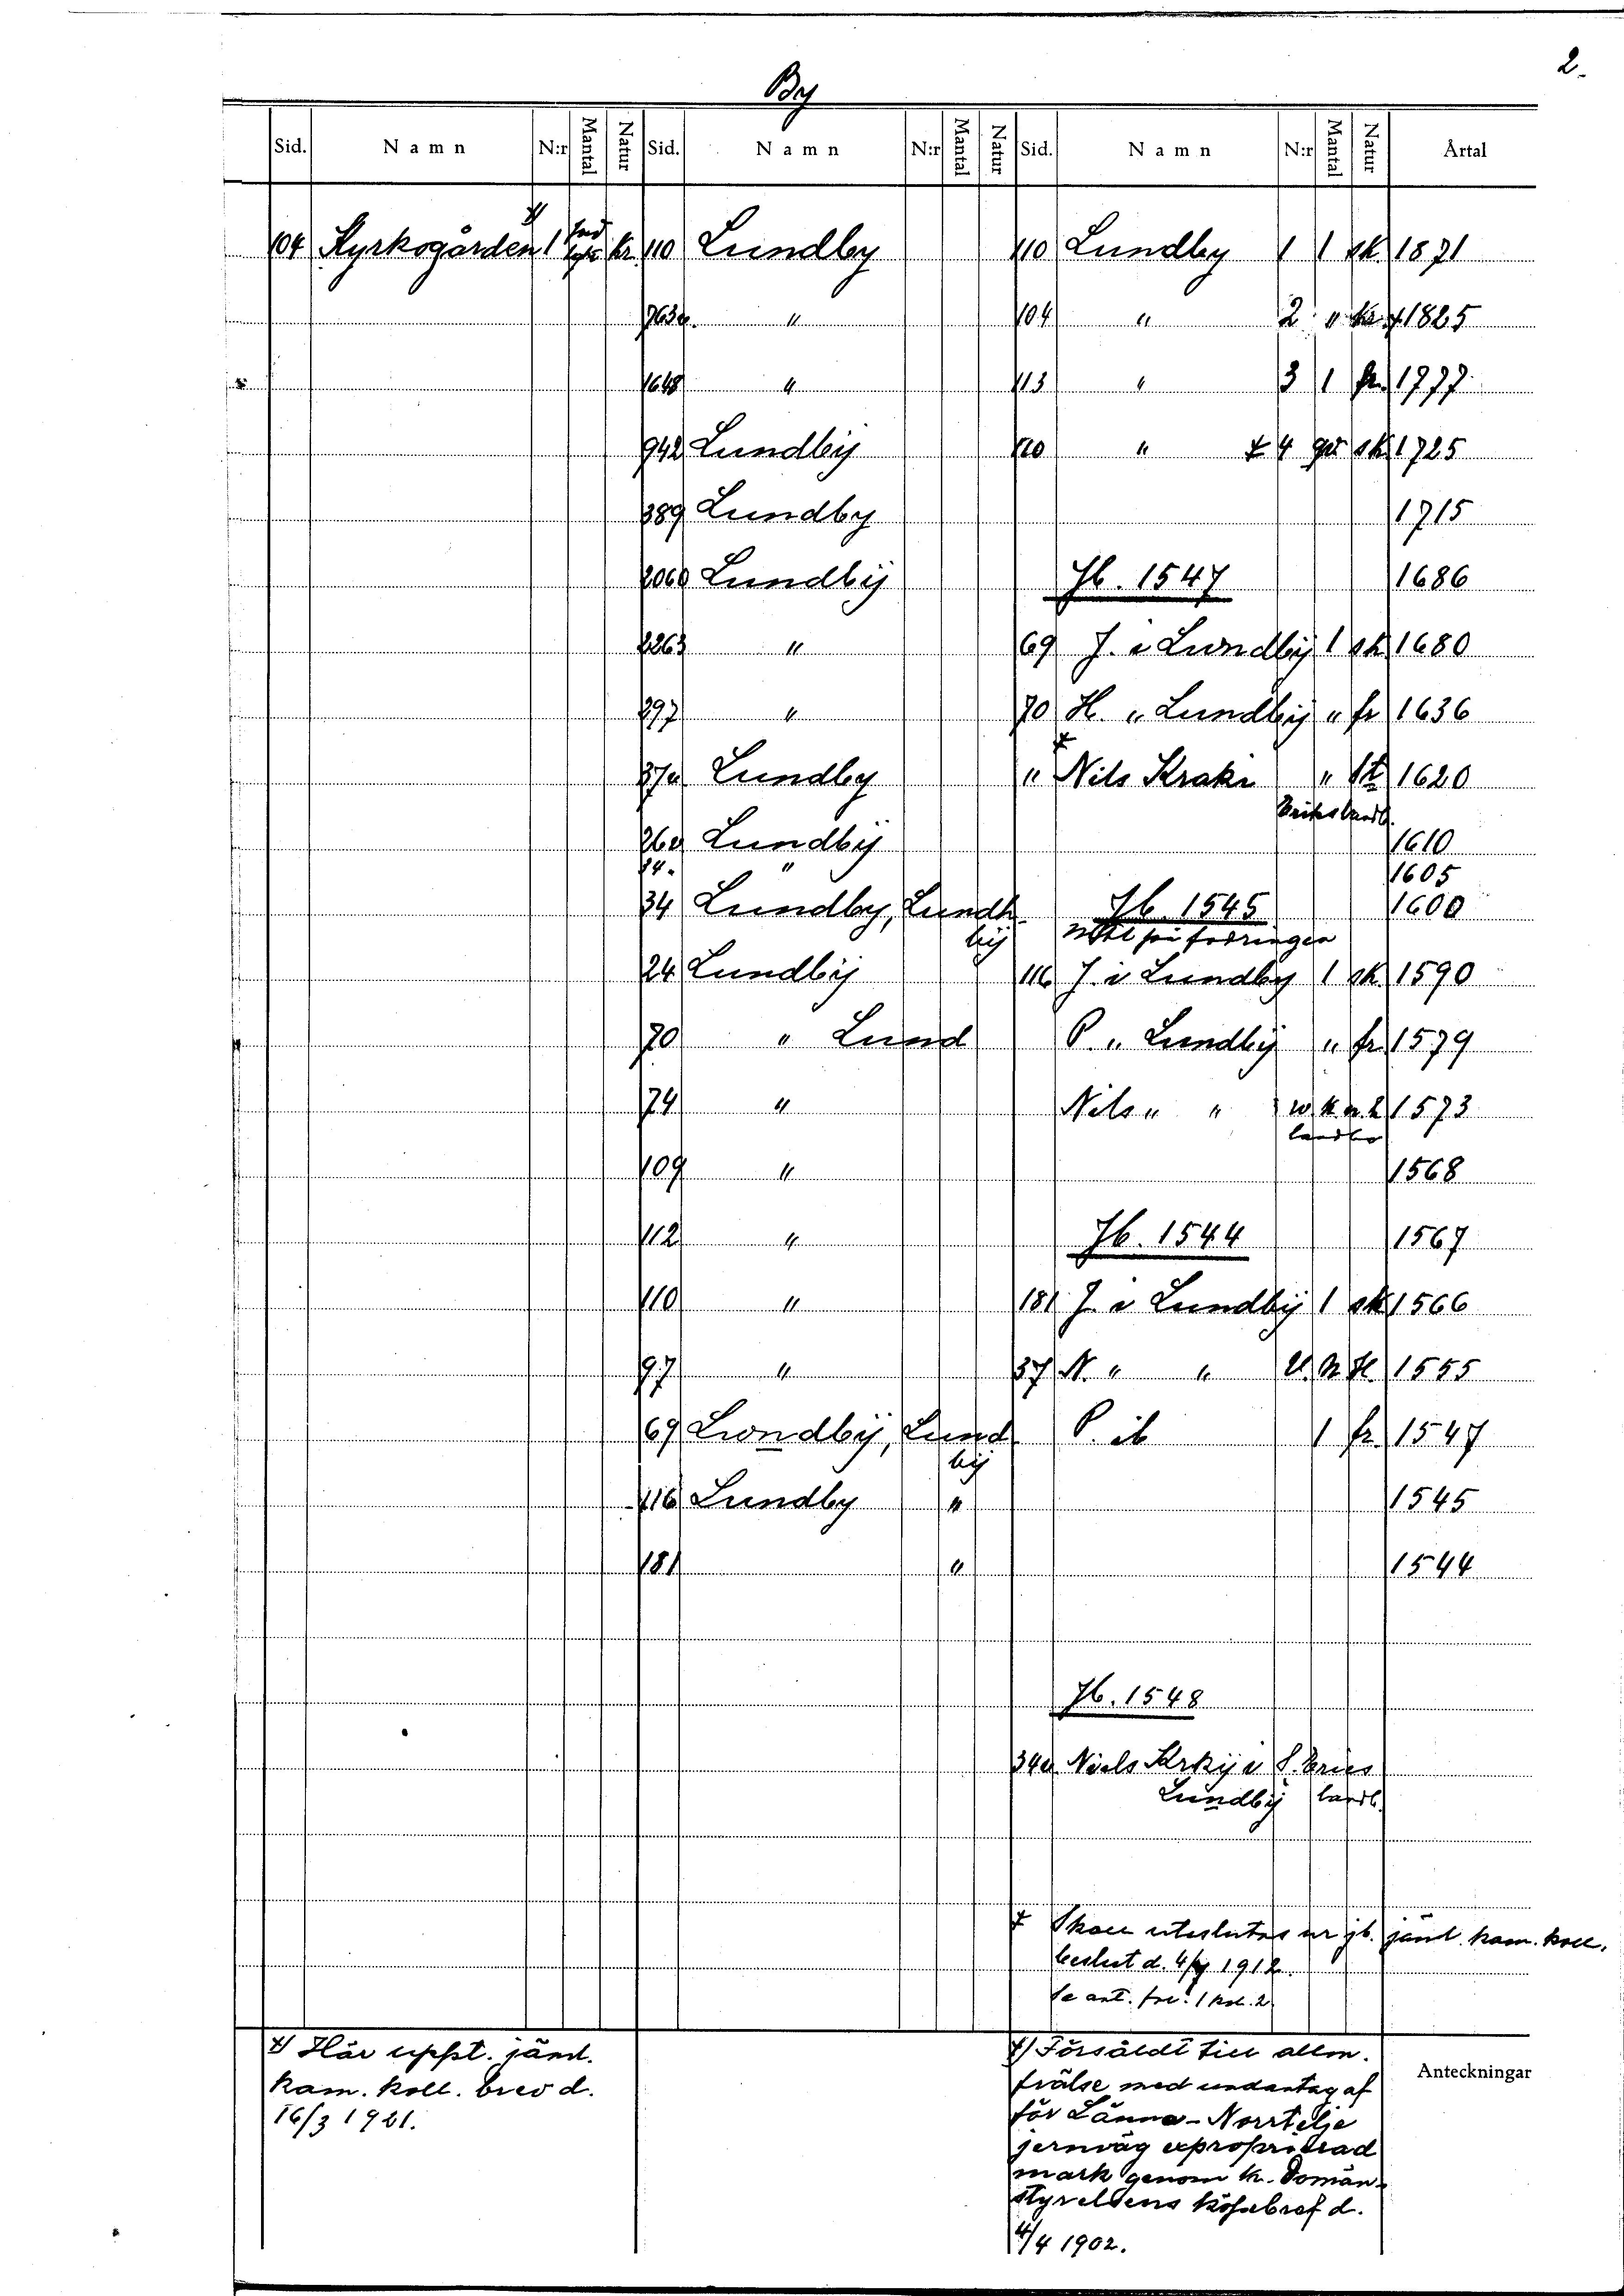 2.
By
Sid. Namn N:r Mantal Natur Sid. Namn N:r Mantal Natur Sid. Namn N:r Mantal Natur Årtal
104 Kyrkogården 1 kr 110 Lundby 110 Lundby 1 1 sk. 1871
763a. " 104 " 2 " kr 1825
1648 " 113 " 3 1 fr. 1777
942 Lundbÿ 120 " ‡ 4 sk 1725
389 Lundby 1715
2060 Lundbÿ Jb. 1547 1686
2263 " 69 J. i Lwndbÿ 1 sk 1680
297 " 70 H. " Lundbÿ " fr 1636
37a Lundby " Nils Krake " St 1620
Eriks landb.
26a Lundbÿ 1610
14. " 1605
34 Lundby, Lundh Jb. 1545 1600
bÿ
24 Lundbÿ 116 J. i Lundby 1 sk. 1590
70 " Lund P. " Lundbÿ " fr. 1579
74 " Nils " " 1573
landbo
109 " 1568
112 " Jb. 1544 1567
110 " 181 J. i Lundbÿ 1 sk 1566
97 " 37 N. " " 1555
69 Lwndbÿ, Lund P. ib 1 fr. 1547
bÿ
116 Lundby " 1545
181 " 1544
Jb. 1548
34a Niels i S. Erics
Lundbÿ landb.
‡ Skall uteslutas ur jb. jäml. kam. koll.
beslut d. 4/9 1912.
Se ant. fol. 1 kol. 2.
x) Här uppt. jäml.
kam. koll. brev d.
16/3 1921.
‡) Försåldt till allm.
frälse med undantag af
för Länna-Norrtelje
jernväg exproprierad
mark genom K. Domän-
styrelsens köpebref d.
4/4 1902.
Anteckningar